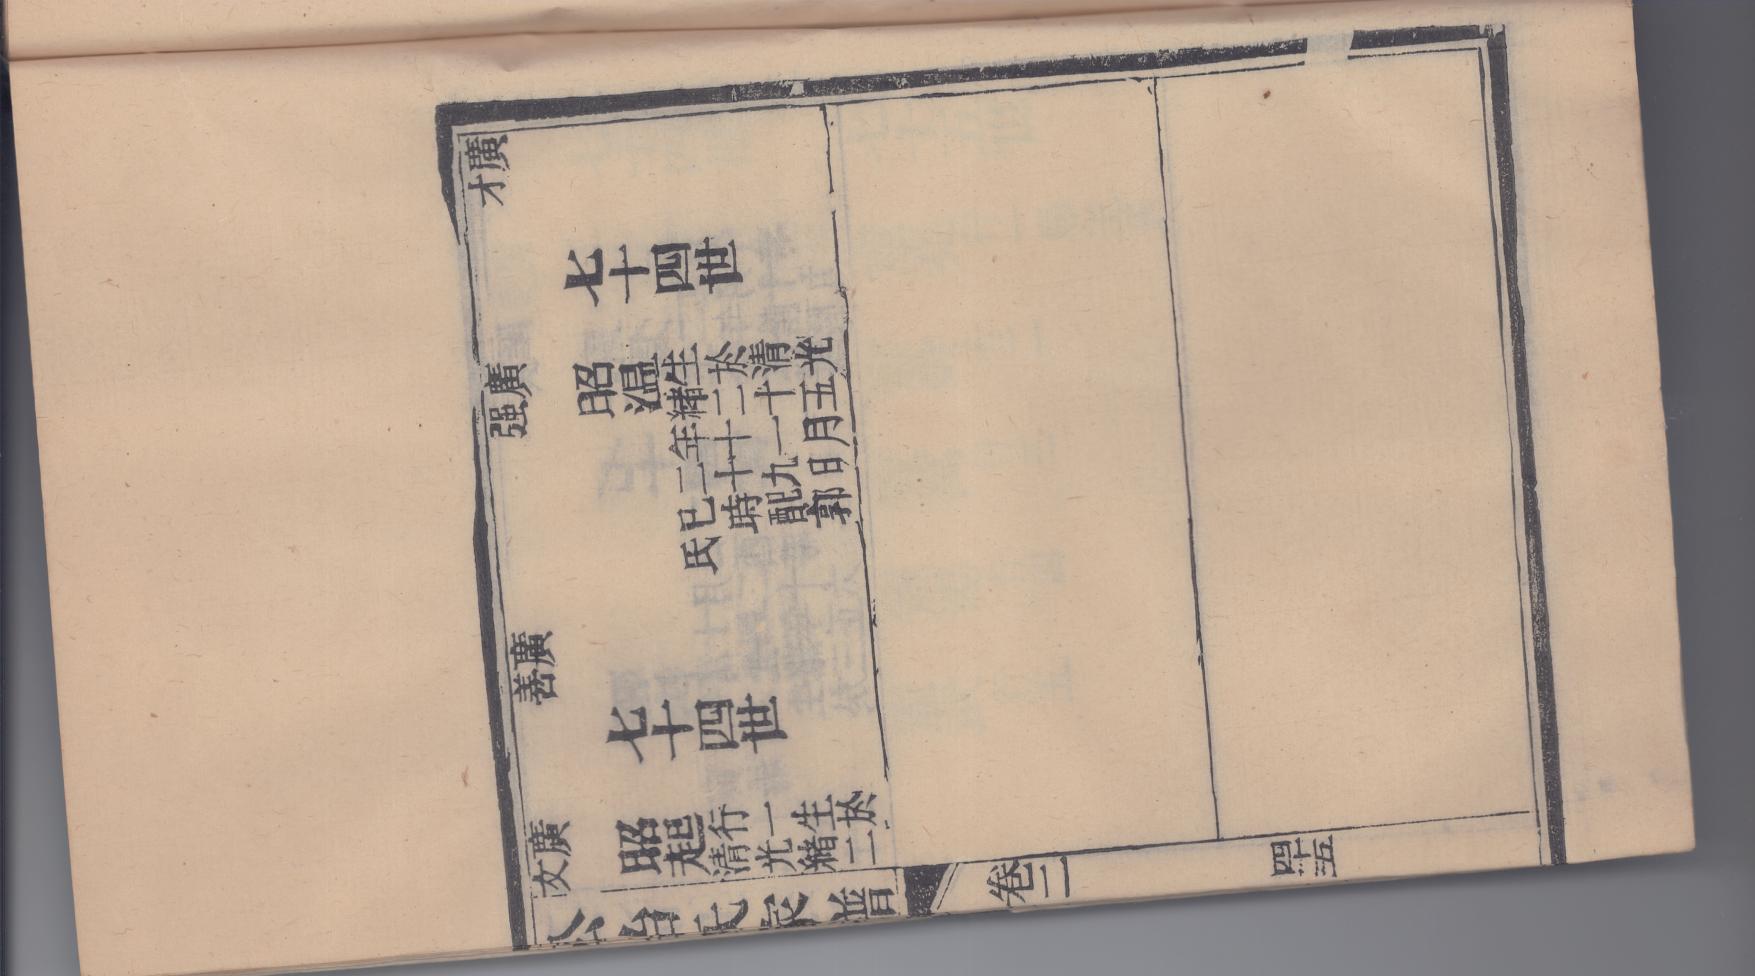 廣才
七十四世
廣强
昭温
生於清光
緒二十五
年十一月
二十九日
巳時配郭
氏
廣善
七十四世
廣文
昭超
行一生於
清光緒二
卷二
四十五